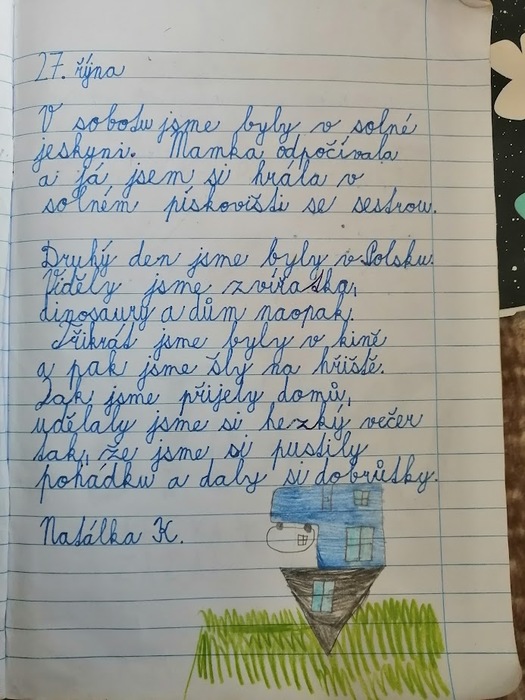 27. října
V sobotu jsme byly v solné
jeskyni. Mamka odpočívala
a já jsem si hrála v
solném pískovišti se sestrou.
Druhý den jsme byly v Polsku.
Viděly jsme zvířátka,
dinosaury a dům naopak.
Třikrát jsme byly v kině
a pak jsme šly na hřiště.
Jak jsme přijely domů,
udělaly jsme si hezký večer
tak, že jsme si pustily
pohádku a daly si dobrůtky.
Natálka K.